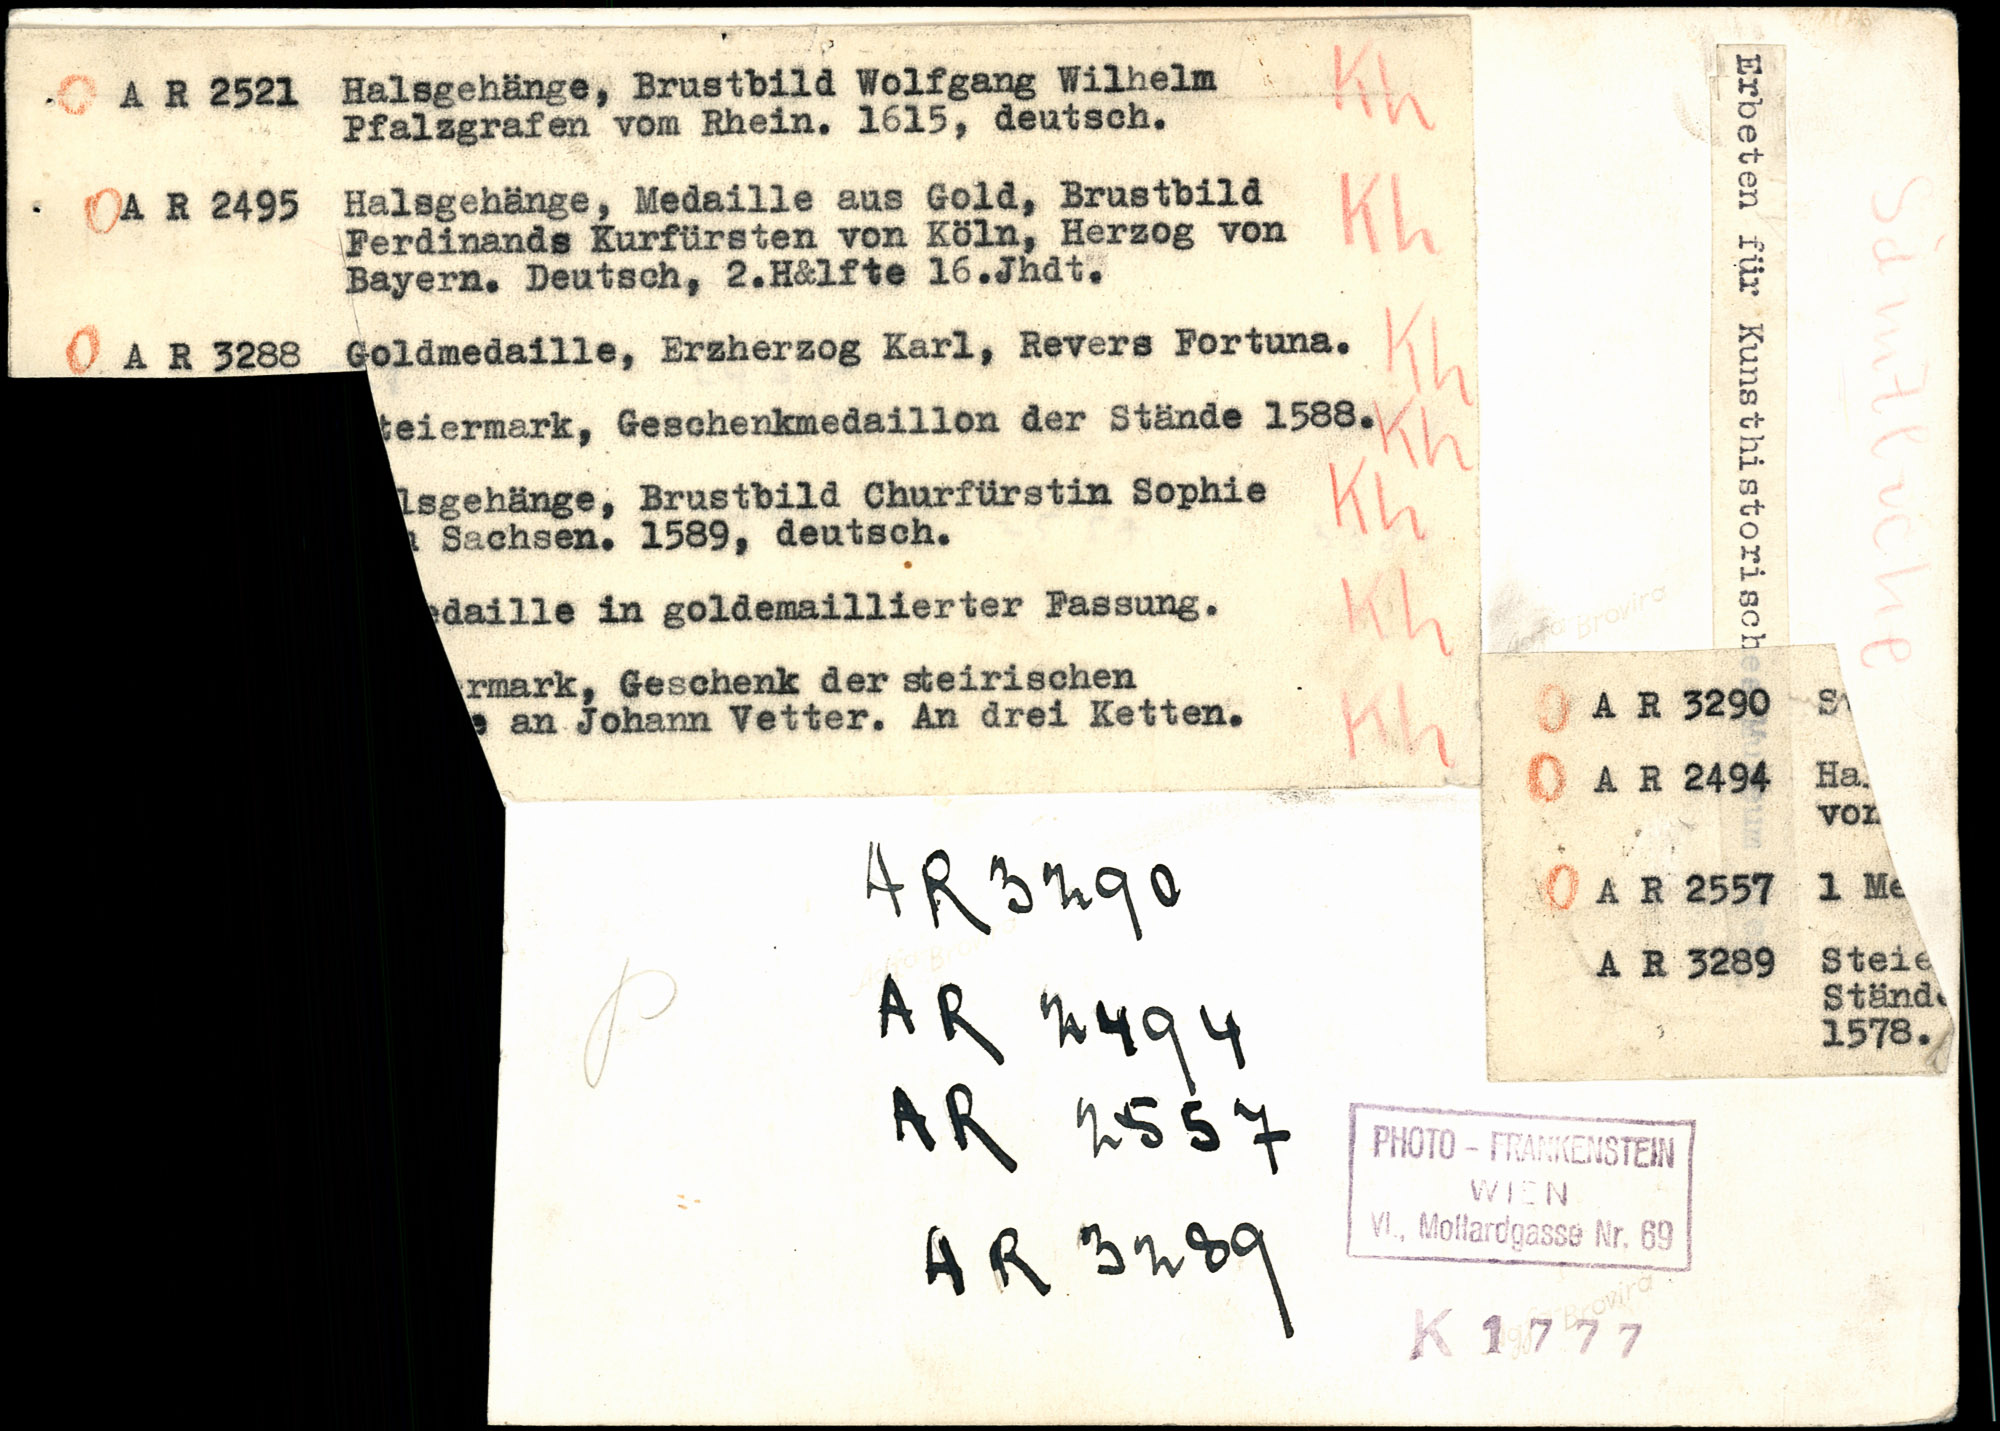 O A R 2521 Halsgehänge, Brustbild Wolfgang Wilhelm Kh
Pfalzgrafen vom Rhein. 1615, deutsch.
O A R 2495 Halsgehänge, Medaille aus Gold, Brustbild Kh
Ferdinands Kurfürsten von Köln, Herzog von
Bayern. Deutsch, 2.H&lfte 16.Jhdt.
O A R 3288 Goldmedaille, Erzherzog Karl, Revers Fortuna. Kh
teiermark, Geschenkmedaillon der Stände 1588. Kh
lsgehänge, Brustbild Churfürstin Sophie Kh
n Sachsen. 1589, deutsch.
edaille in goldemaillierter Fassung. Kh
rmark, Geschenk der steirischen
e an Johann Vetter. An drei Ketten. Kh
Erbeten für Kunsthistorische
Sämtliche
O A R 3290 St
O A R 2494 Hal
von
O A R 2557 1 Me
A R 3289 Steie
Stände
1578.
AR 3290
AR 2494
AR 2557
AR 3289
PHOTO - FRANKENSTEIN
WIEN
VI., Mollardgasse Nr. 69
K 1777
Agfa Brovira
Agfa Brovira
Agfa Brovira